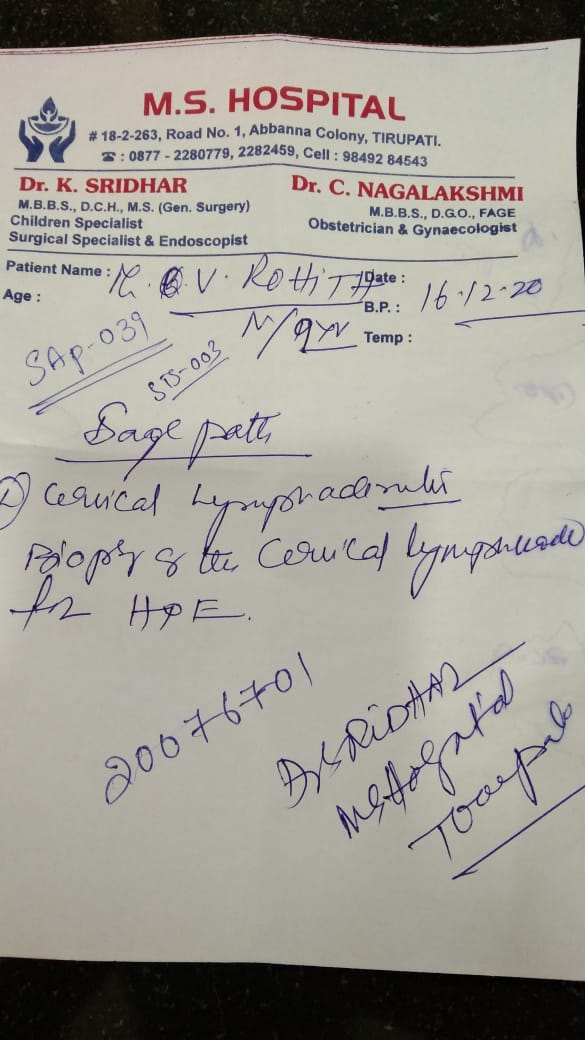 M.S. HOSPITAL
# 18-2-263, Road No. 1, Abbanna Colony, TIRUPATI.
☎ : 0877 - 2280779, 2282459, Cell : 98492 84543
Dr. K. SRIDHAR
M.B.B.S., D.C.H., M.S. (Gen. Surgery)
Children Specialist
Surgical Specialist & Endoscopist
Dr. C. NAGALAKSHMI
M.B.B.S., D.G.O., FAGE
Obstetrician & Gynaecologist
Patient Name : V. ROHITH
Date : 16-12-20
Age : M/9yr
B.P. :
Temp :
SAP-039
STS-003
Sage path
Cervical lymphadenitis
Biopsy of the Cervical lymphnode
for HPE.
20076701
Dr SRIDHAR
MS Hospital